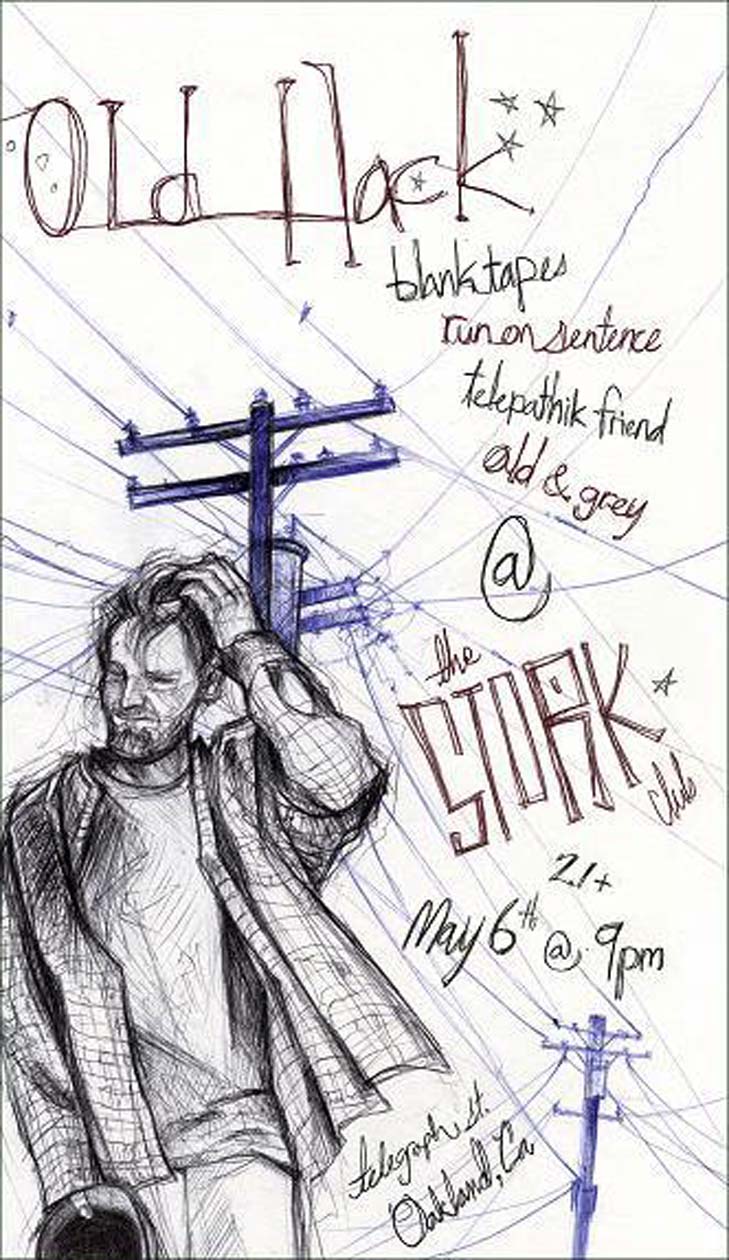 OLd Hack
blank tapes
run on sentence
telepathik friend
old & grey
@
the
STORK
club
21+
May 6th @ 9pm
telegraph st.
Oakland, Ca